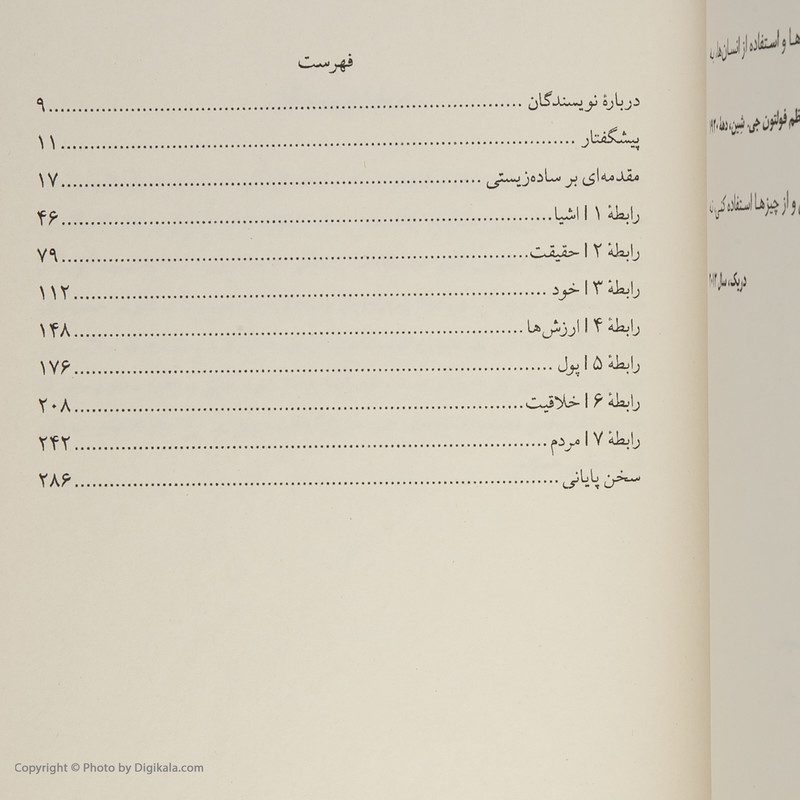 فهرست
دربارهٔ نویسندگان ........ ۹
پیشگفتار ........ ۱۱
مقدمه‌ای بر ساده‌زیستی ........ ۱۷
رابطهٔ ۱ | اشیا ........ ۴۶
رابطهٔ ۲ | حقیقت ........ ۷۹
رابطهٔ ۳ | خود ........ ۱۱۲
رابطهٔ ۴ | ارزش‌ها ........ ۱۴۸
رابطهٔ ۵ | پول ........ ۱۷۶
رابطهٔ ۶ | خلاقیت ........ ۲۰۸
رابطهٔ ۷ | مردم ........ ۲۴۲
سخن پایانی ........ ۲۸۶
ها و استفاده از انسان‌ها
فولتون جی. شین، دههٔ ۱۹۲۰
و از چیزها استفاده کن
دریک، سال ۲۰۱۳
Copyright © Photo by Digikala.com